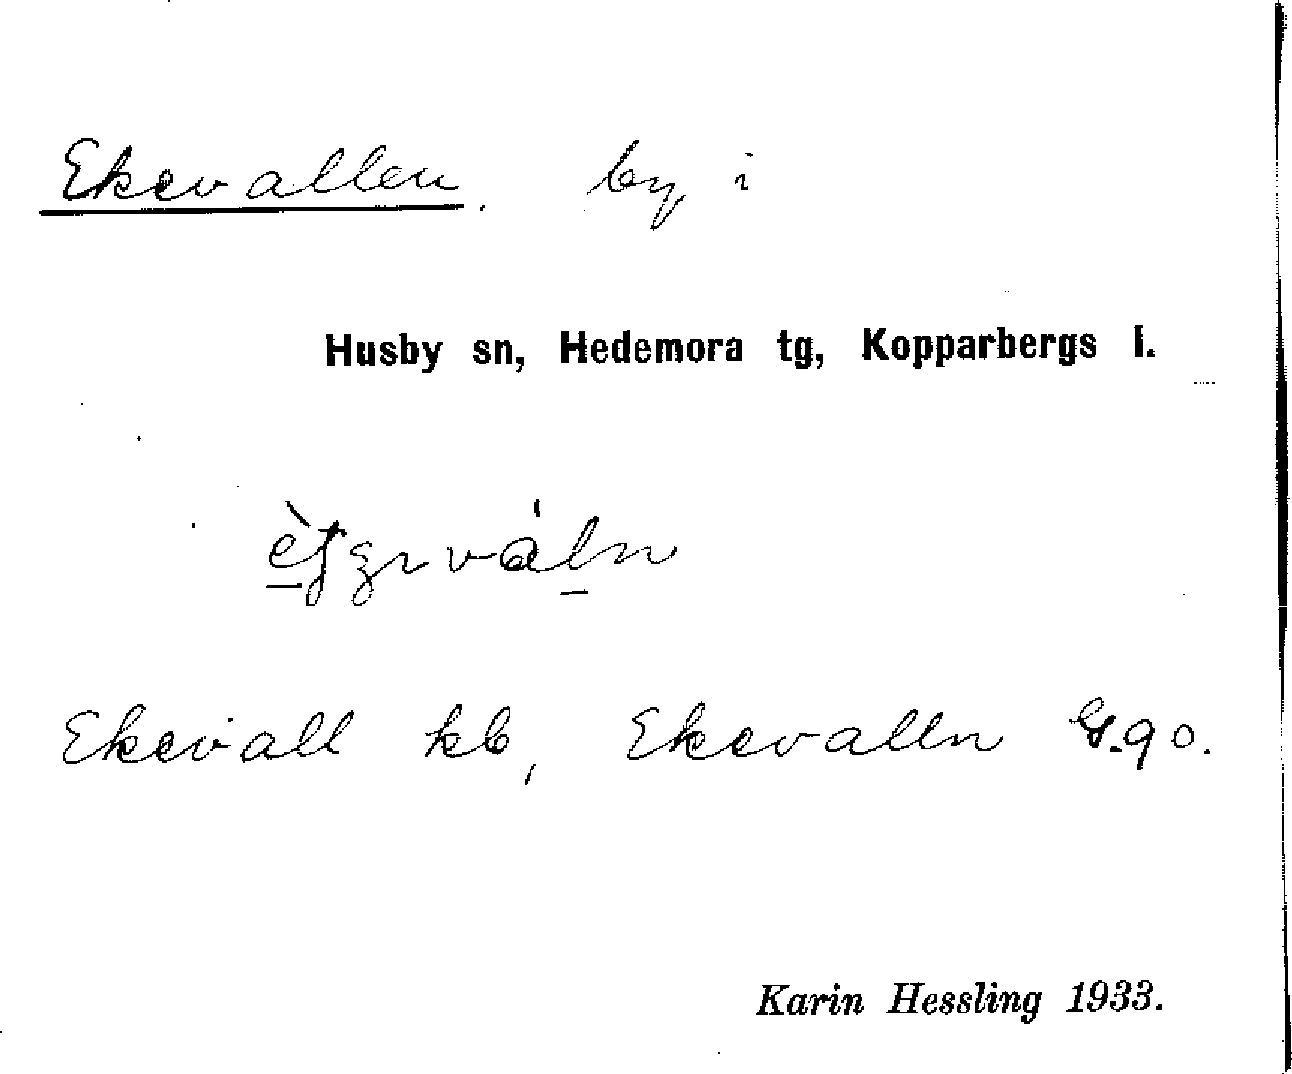 Ekevallen. by i
Husby sn, Hedemora tg, Kopparbergs l.
Ekevall kb, Ekevalln G.90.
Karin Hessling 1933.